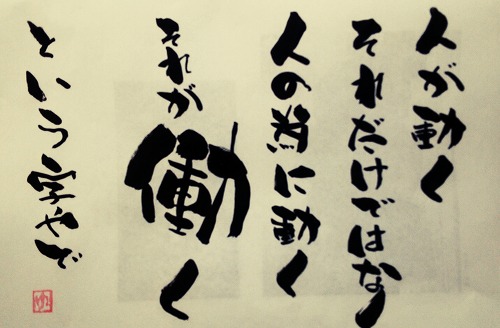 人が動く
それだけではなく
人の為に動く
それが
働く
という字やで